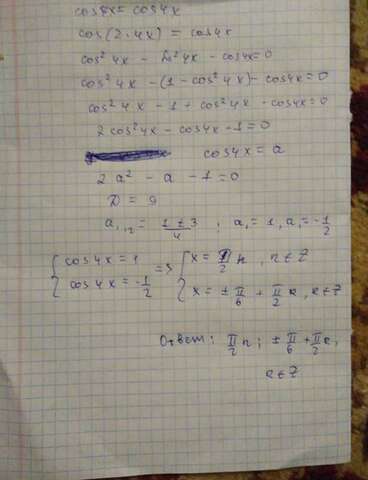 cos8x = cos4x
cos(2·4x) = cos4x
cos²4x - sin²4x - cos4x=0
cos²4x - (1 - cos²4x) - cos4x=0
cos²4x - 1 + cos²4x - cos4x=0
2cos²4x - cos4x - 1=0
cos4x = a
2a² - a - 1=0
D = 9
a₁,₂ = (1±3)/4 ; a₁=1, a₂=-1/2
{ cos4x = 1 => { x = π/2 n, n∈Z
cos4x = -1/2 x = ±π/6 + π/2 k, k∈Z
Ответ: π/2 n; ±π/6 + π/2 k,
k∈Z